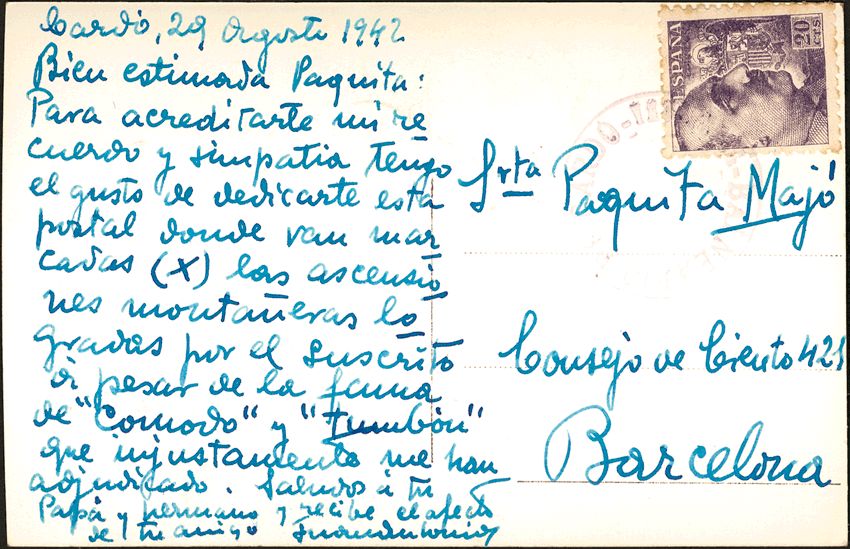 Cardó, 29 Agosto 1942
Bien estimada Paquita:
Para acreditarte mi re
cuerdo y simpatia tengo
el gusto de dedicarte esta
postal donde van mar
cadas (X) las ascensio
nes montañeras lo
gradas por el suscrito
á pesar de la fama
de "Comodo" y "tumbón"
que injustamente me han
adjudicado. Saludos á tu
Papá y hermano y recibe el afecto
de tu amigo Juan Antonio
ESPAÑA
20
cts
Srta Paquita Majó
Consejo de Ciento 421
Barcelona